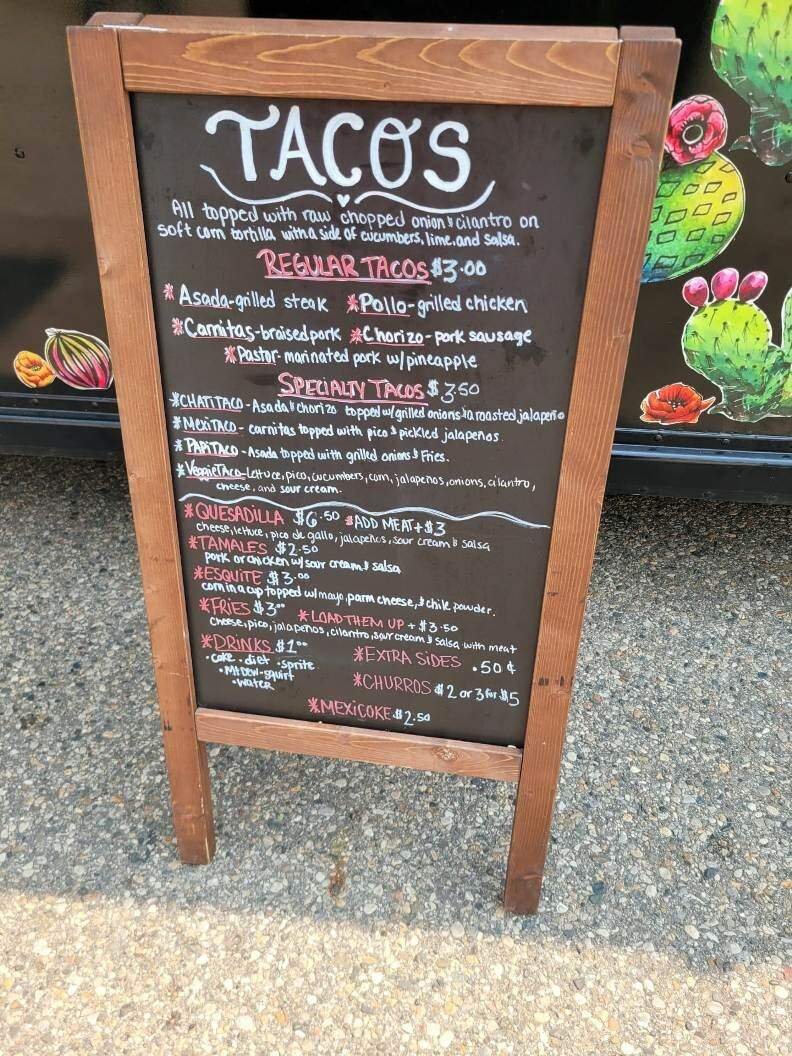 TACOS
All topped with raw chopped onion & cilantro on
soft corn tortilla with a side of cucumbers, lime, and salsa.
REGULAR TACOS $3.00
*Asada-grilled steak *Pollo-grilled chicken
*Carnitas-braised pork *Chorizo-pork sausage
*Pastor-marinated pork w/pineapple
SPECIALTY TACOS $3.50
*CHATITACO-Asada & chorizo topped w/grilled onions & a roasted jalapeño
*MEXITACO-carnitas topped with pico & pickled jalapeños.
*PAPITACO-Asada topped with grilled onions & Fries.
*VEGGIETACO-Lettuce, pico, cucumbers, corn, jalapeños, onions, cilantro,
cheese, and sour cream.
*QUESADILLA $6.50 *ADD MEAT+$3
cheese, lettuce, pico de gallo, jalapeños, sour cream & salsa
*TAMALES $2.50
pork or chicken w/ sour cream & salsa
*ESQUITE $3.00
corn in a cup topped w/mayo, parm cheese, & chile powder.
*FRIES $3.00 *LOAD THEM UP + $3.50
cheese, pico, jalapeños, cilantro, sour cream & salsa with meat
*DRINKS $1.00 *EXTRA SIDES .50¢
•coke •diet •sprite
•Mt Dew-squirt *CHURROS $2 or 3 for $5
•water
*MEXICOKE $2.50